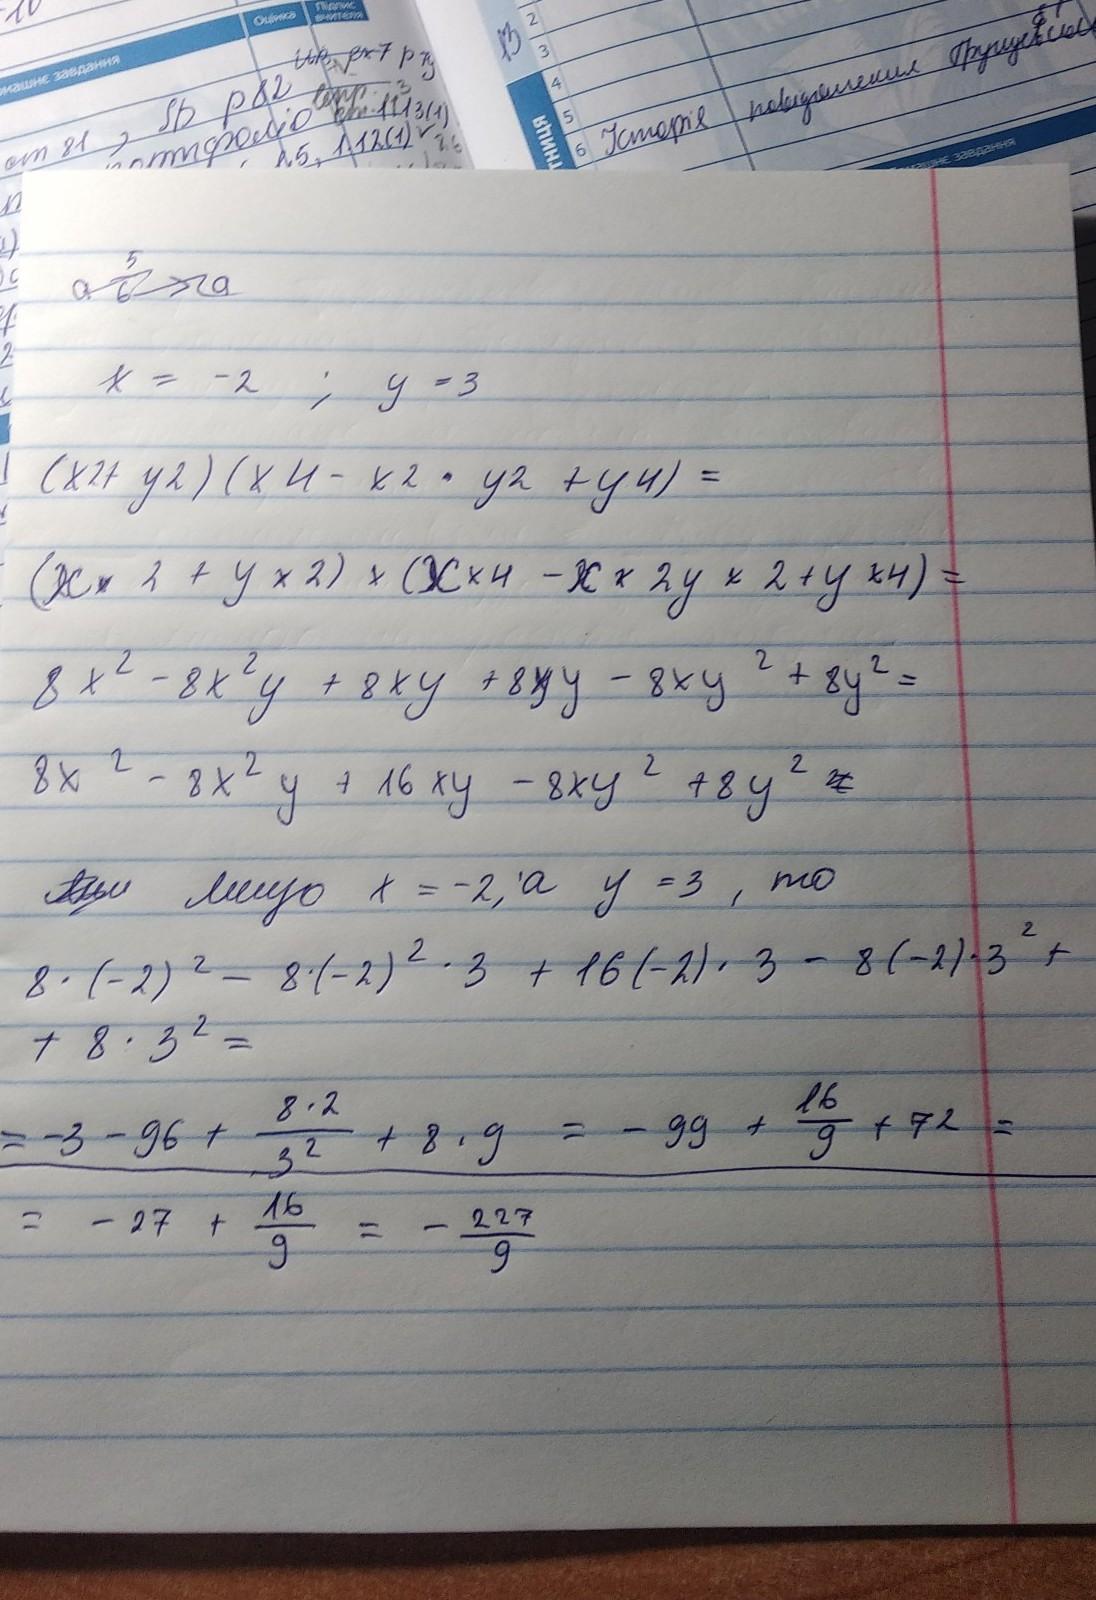 -10
Оцінка
Підпис вчителя
машнє завдання
ст 81, p 82
1.13(1)
1.12(1)
13
2
3
4
5
6 Історія повідомлення
машнє завдання
a 5/6 > a
x = -2 ; y = 3
(x2+ y2)(x4 - x2 · y2 + y4) =
(x × 2 + y × 2) × (x × 4 - x × 2y × 2 + y × 4) =
8x² - 8x²y + 8xy + 8xy - 8xy² + 8y² =
8x² - 8x²y + 16xy - 8xy² + 8y²
x = -2, а y = 3, то
8 · (-2)² - 8·(-2)² · 3 + 16(-2) · 3 - 8(-2)·3² +
+ 8 · 3² =
= -3 - 96 + 8·2/3² + 8 · 9 = - 99 + 16/9 + 72 =
= - 27 + 16/9 = - 227/9